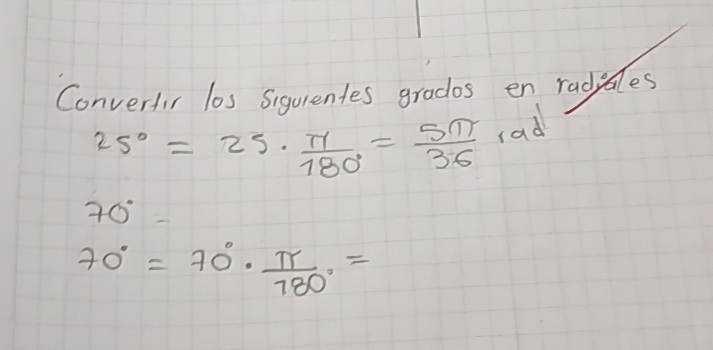 Convertir los siguientes grados en radiales
25° = 25 · π/180° = 5π/36 rad
70° =
70° = 70° · π/180° =